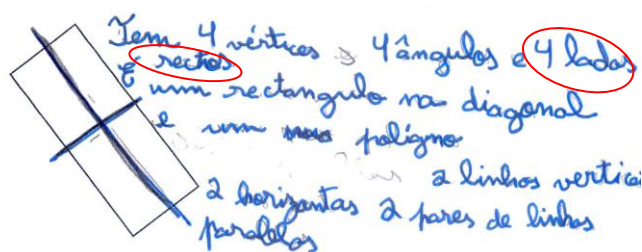 Tem 4 vértices 4 ângulos e 4 lados
rectos
É um rectangulo na diagonal
e um polígno
2 linhos vertici
2 horizontas 2 pares de linhos
paralelos